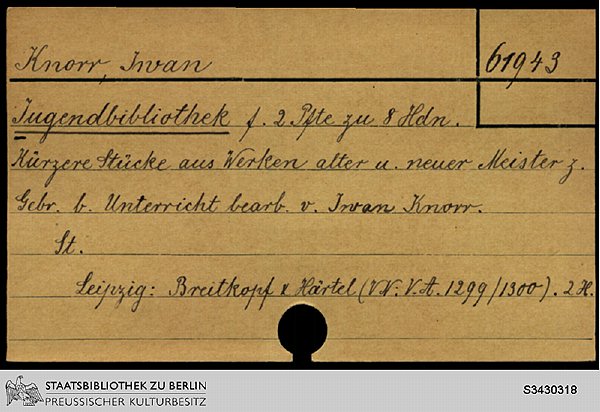 Knorr, Iwan
61943
Jugendbibliothek f. 2 Pfte zu 8 Hdn.
Kürzere Stücke aus Werken alter u. neuer Meister z.
Gebr. b. Unterricht bearb. v. Iwan Knorr.
St.
Leipzig: Breitkopf & Härtel (V.N. V.A. 1299/1300). 2 H.
STAATSBIBLIOTHEK ZU BERLIN
PREUSSISCHER KULTURBESITZ
S3430318